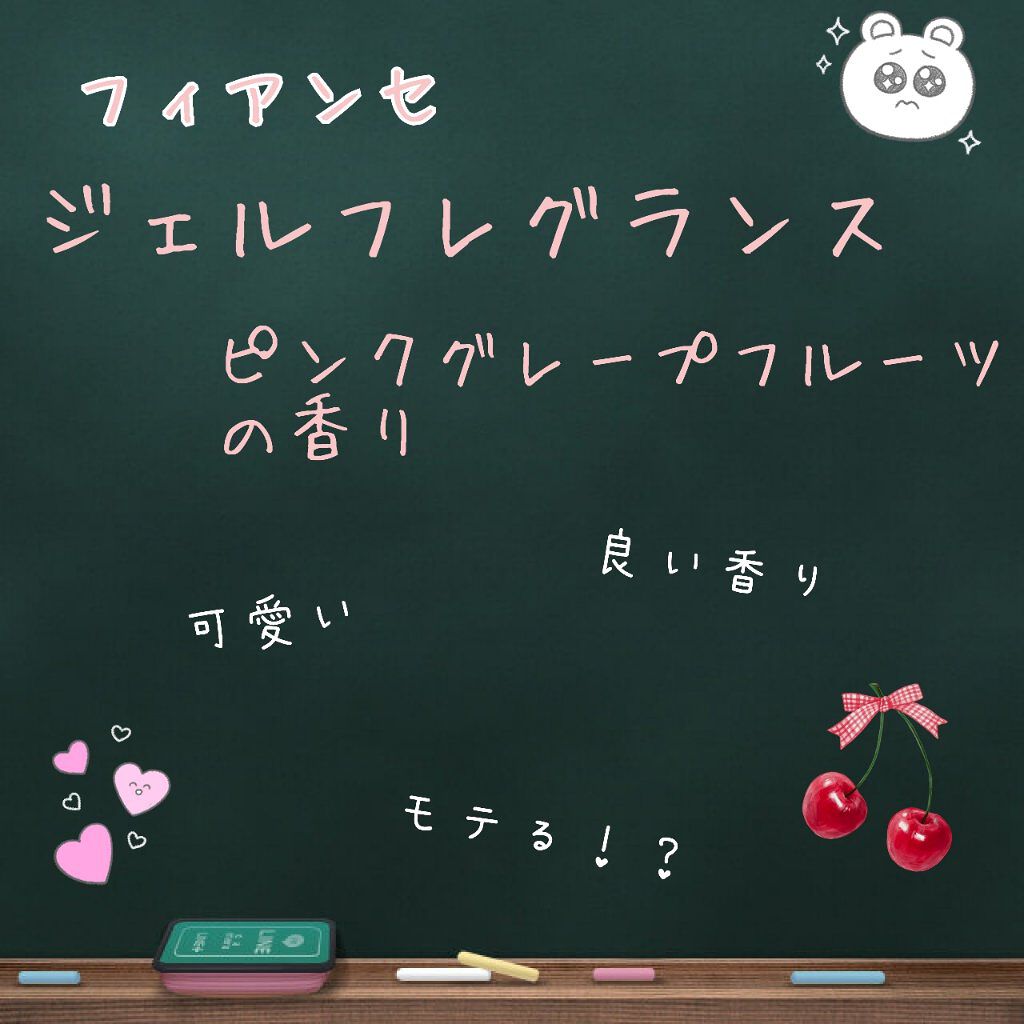 フィアンセ
ジェルフレグランス
ピンクグレープフルーツ
の香り
良い香り
可愛い
モテる!?
LINE